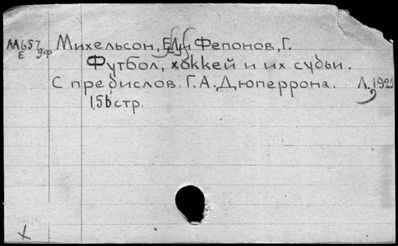 М657 Михельсон, Е. и Фепонов, Г.
Е 9ф
Футбол, хоккей и их судьи.
С предислов. Г.А. Дюперрона. Л, 192
156 стр.
X